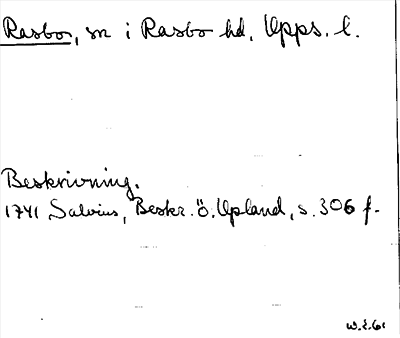 Rasbo, sn i Rasbo hd, Upps. l.
Beskrivning.
1741 Salvius, Beskr. ö. Upland, s. 306 f.